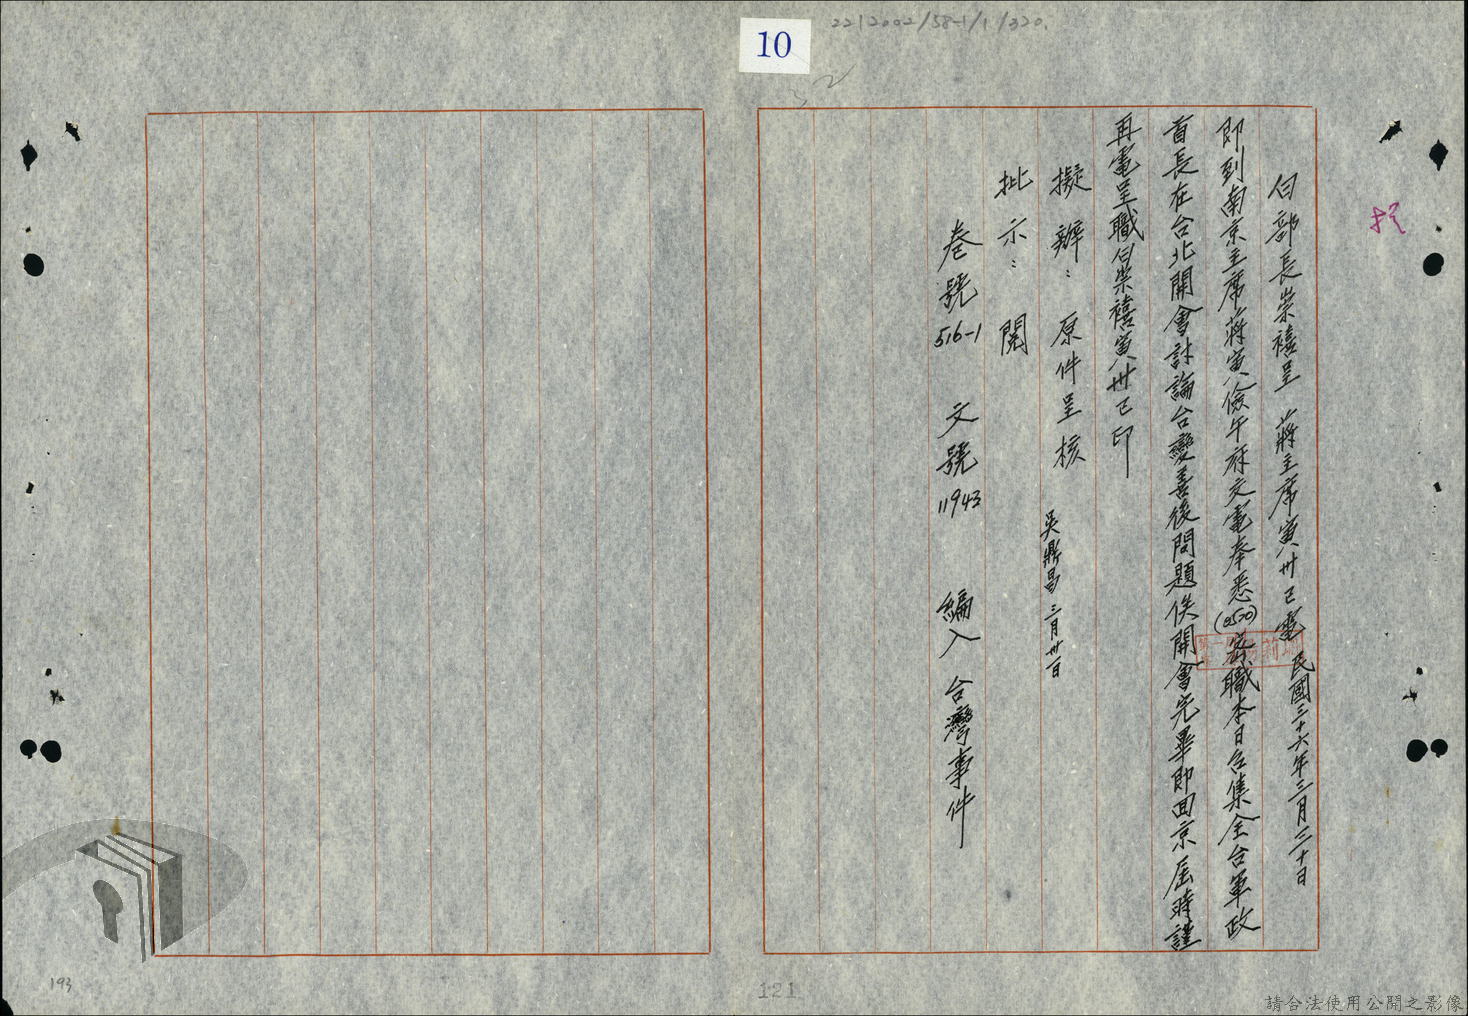 2212002/58-1/1/320.
10
白部長崇禧呈 蔣主席寅卅已電 民國三十六年三月三十日
即到南京主席蔣寅儉午府交電奉悉(0520)密職本日召集全台軍政
首長在台北開會討論台變善後問題俟開會完畢即回京屆時謹
再電呈職白崇禧寅卅已印
擬辦：原件呈核 吳鼎昌 三月卅一日
批示：閱
卷號 516-1 文號 11943 編入 台灣事件
193
121
請合法使用公開之影像